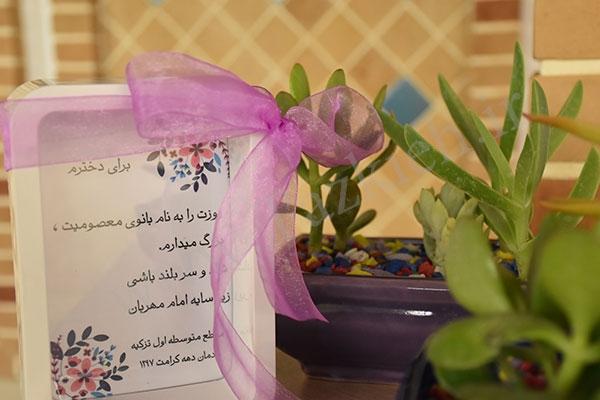 برای دخترم
روزت را به نام بانوی معصومیت ،
بزرگ میدارم.
و سر بلند باشی
زیر سایه امام مهربان
متوسطه اول تزکیه
دهه کرامت ۱۳۹۷